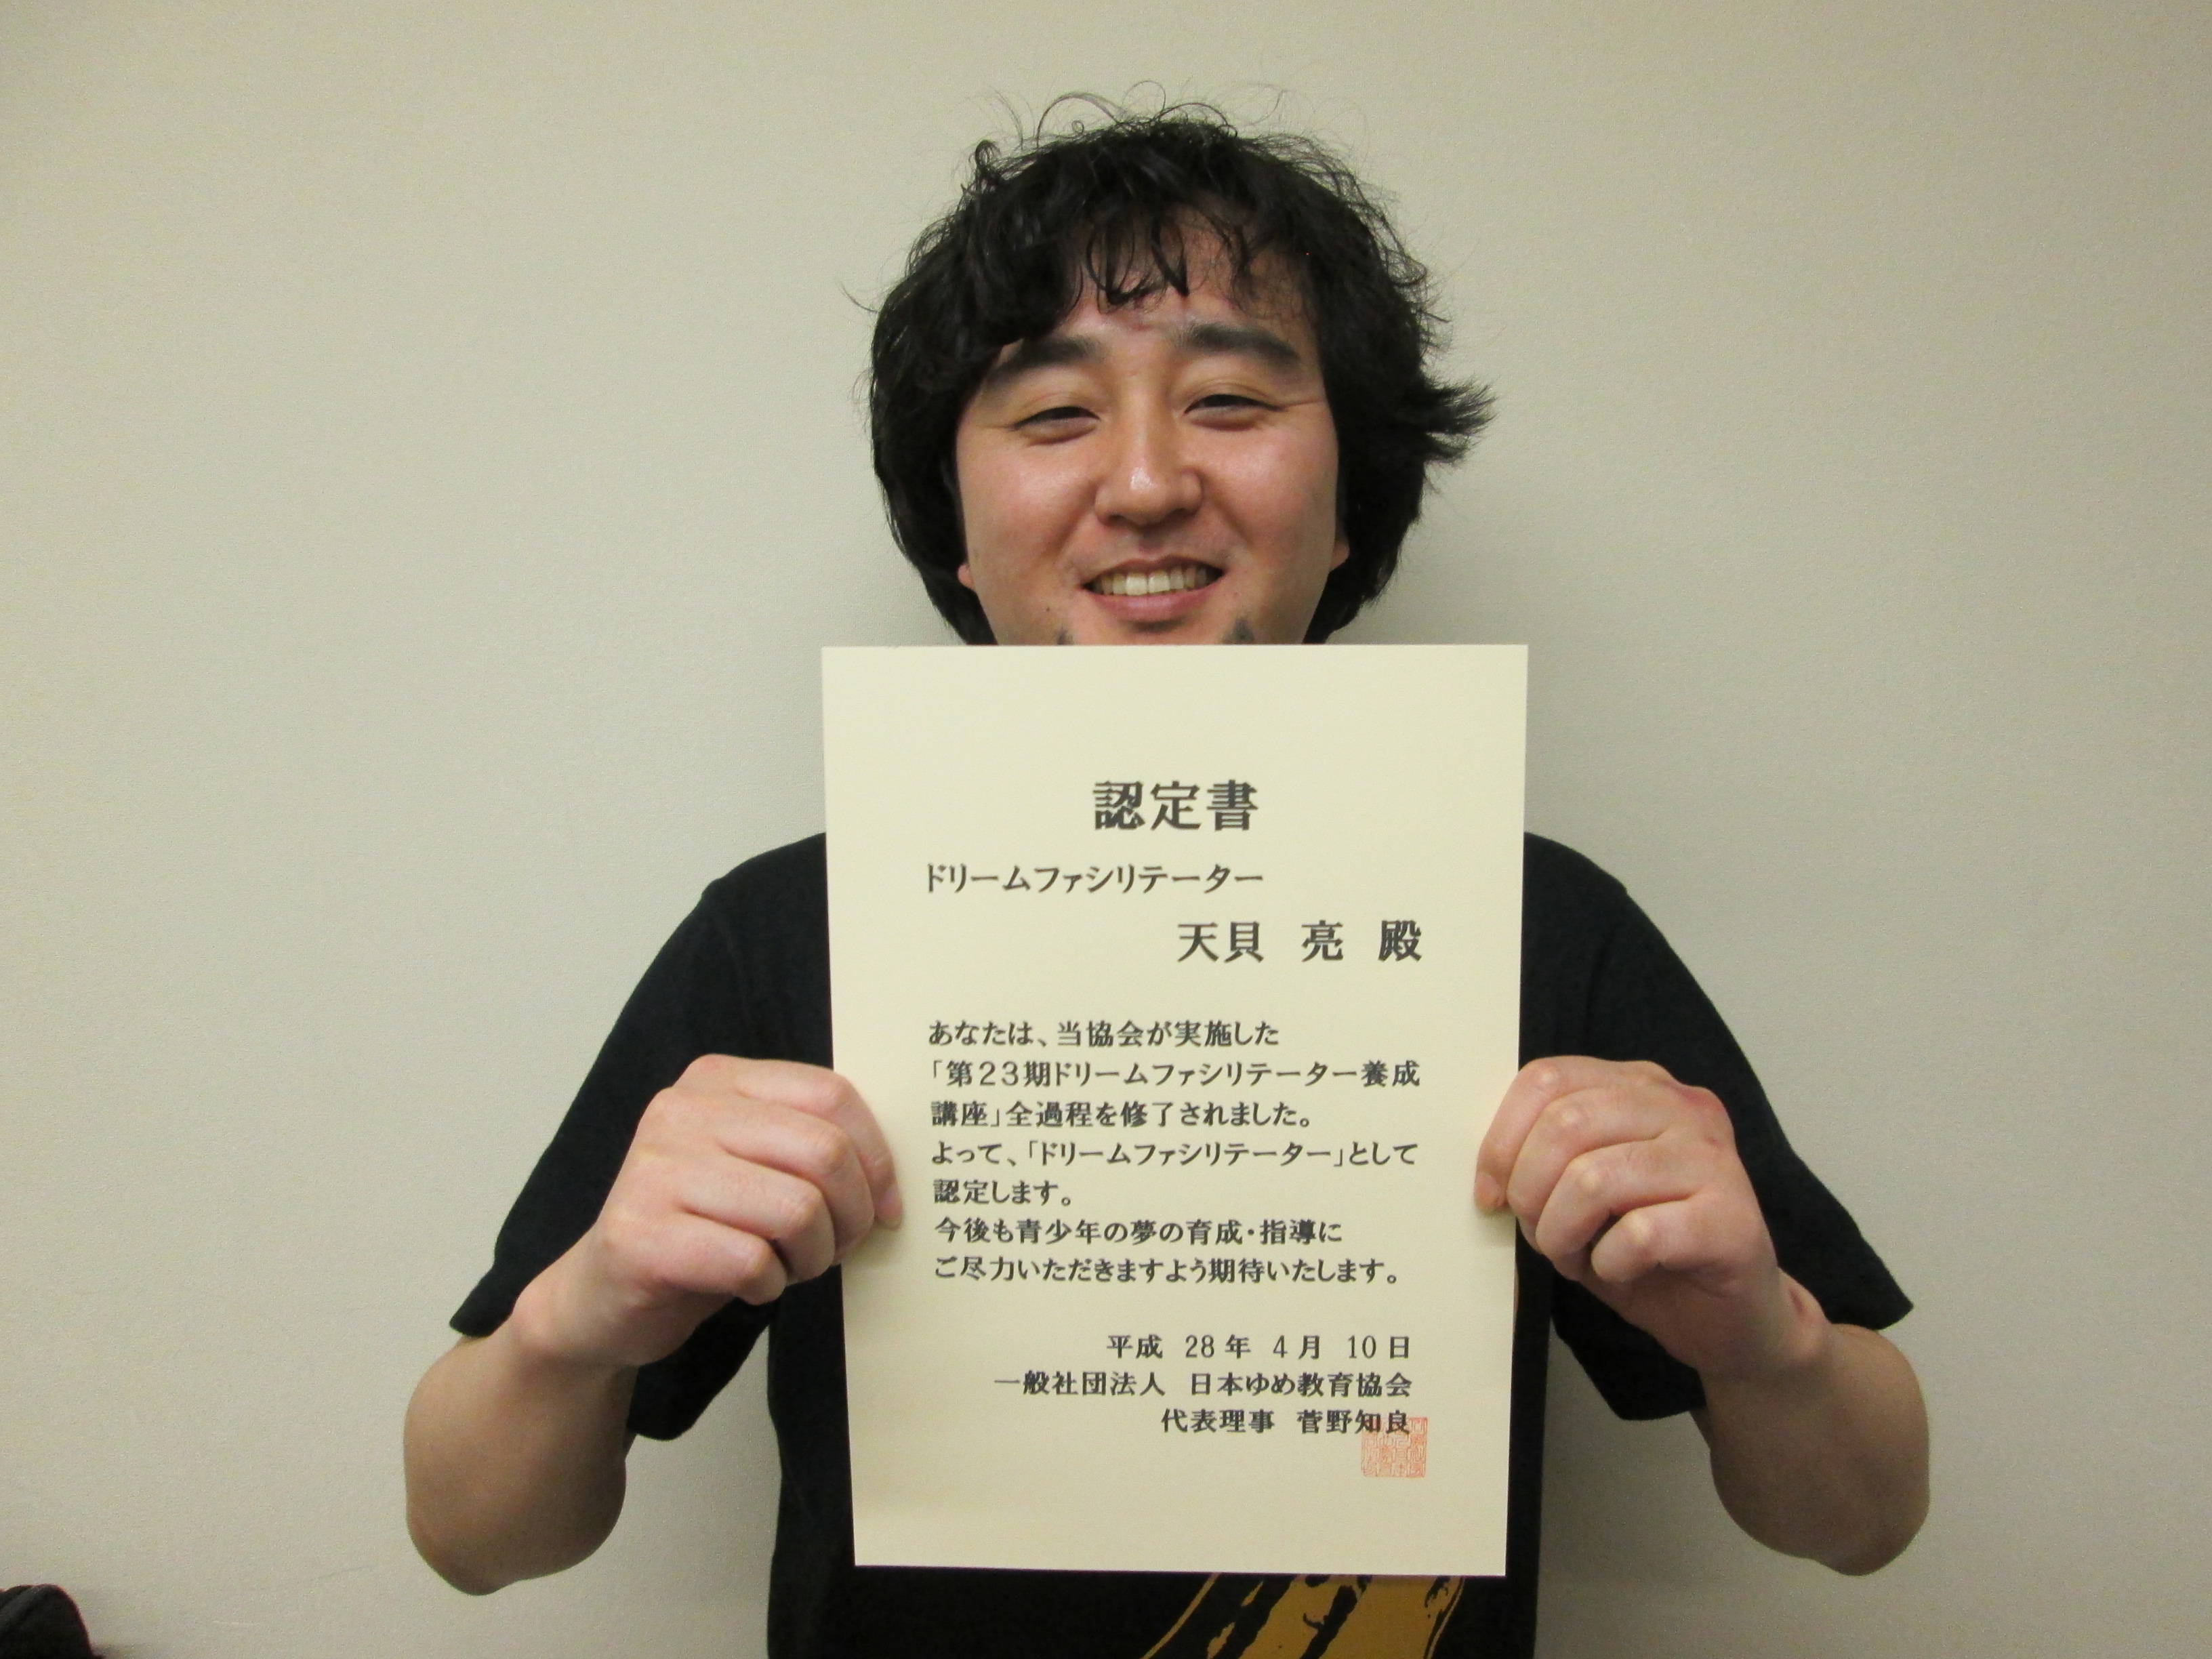 認定書
ドリームファシリテーター
天貝 亮 殿
あなたは、当協会が実施した
「第23期ドリームファシリテーター養成
講座」全過程を修了されました。
よって、「ドリームファシリテーター」として
認定します。
今後も青少年の夢の育成・指導に
ご尽力いただきますよう期待いたします。
平成 28年 4月 10日
一般社団法人 日本ゆめ教育協会
代表理事 菅野知良